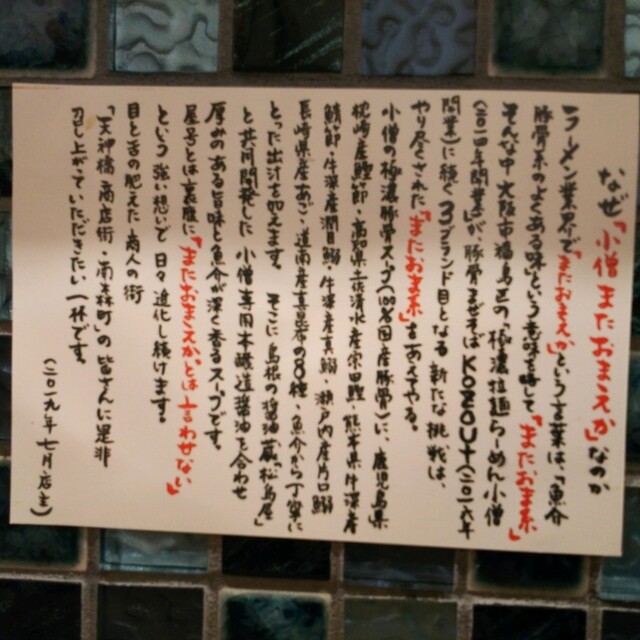 なぜ「小僧 またおまえか」なのか
ラーメン業界で「またおまえか」という言葉は、「魚介
豚骨系のよくある味」という意味を略して「またおま系」
そんな中 大阪市福島区の「極濃拉麺 らーめん小僧
(二〇一四年開業)」が、豚骨まぜそば KOZOU+(二〇一六年
開業)に続く 3ブランド目となる 新たな挑戦は、
やり尽くされた「またおま系」をあえてやる。
小僧の極濃豚骨スープ(100%国産豚骨)に、鹿児島県
枕崎産鰹節・高知県土佐清水産宗田鰹・熊本県牛深産
鯖節・牛深産潤目鰯・牛深産真鰯・瀬戸内産片口鰯
長崎県産あご・道南産真昆布の8種・魚介から丁寧に
とった出汁を加えます。 そこに 島根の醤油蔵「松島屋」
と共同開発した 小僧専用本醸造醤油を合わせ
厚みのある旨味と魚介が深く香るスープです。
屋号とは裏腹に「またおまえかとは言わせない」
という 強い想いで 日々 進化し続けます。
目と舌の肥えた 商人の街
「天神橋商店街・南森町」の皆さんに是非
召し上がっていただきたい 一杯です。
(二〇一九年 七月 店主)